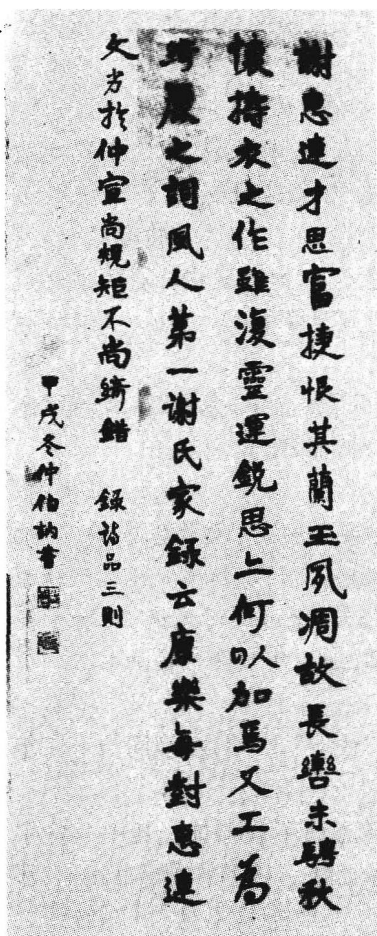 謝惠連才思富捷恨其蘭玉夙凋故長轡未騁秋
懷擣衣之作雖復靈運銳思上何以加焉又工為
綺麗之謌風人第一謝氏家錄云康樂每對惠連
文劣於仲宣尚規矩不尚綺錯 錄詩品三則
甲戌冬仲伯訥書